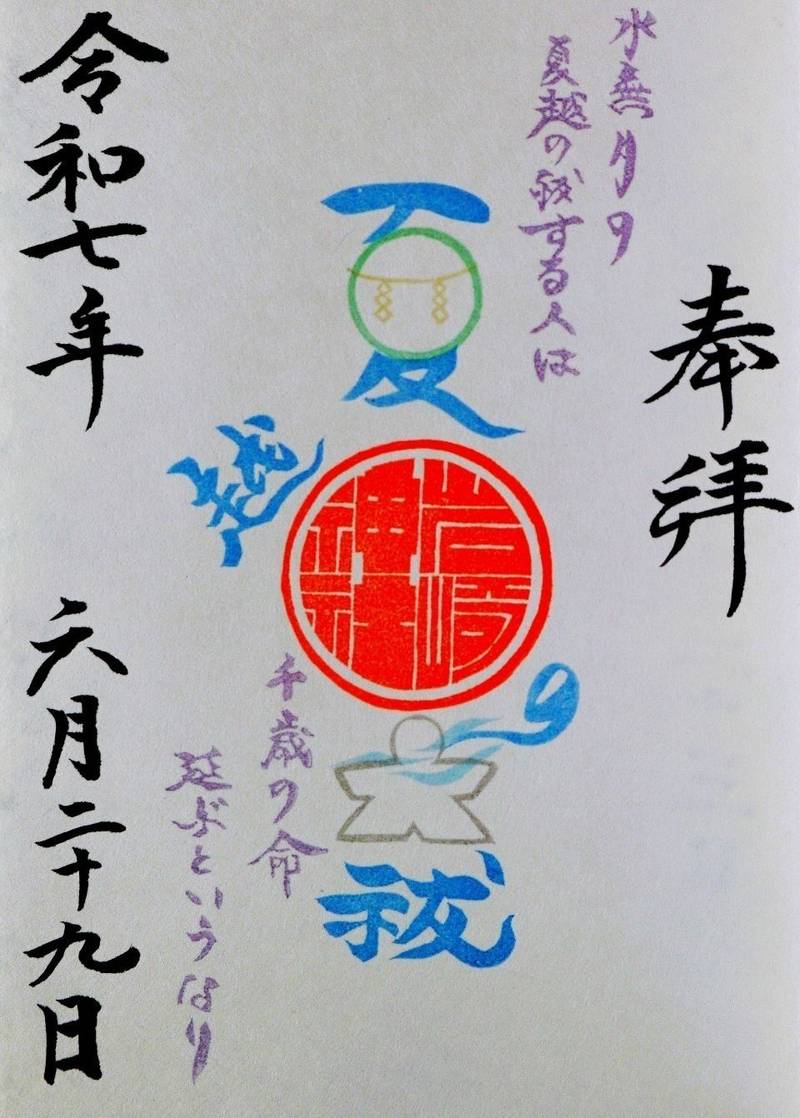 奉拝
水無月の
夏越の祓する人は
夏越の祓
岩崎
神社
千歳の命
延ぶというなり
令和七年 六月二十九日